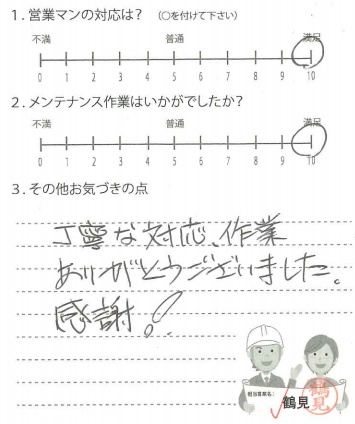 1. 営業マンの対応は? (○を付けて下さい)
不満 普通 満足
0 1 2 3 4 5 6 7 8 9 10
2. メンテナンス作業はいかがでしたか?
不満 普通 満足
0 1 2 3 4 5 6 7 8 9 10
3. その他お気づきの点
丁寧な対応、作業
ありがとうございました。
感謝!
担当営業名: 鶴見
鶴見